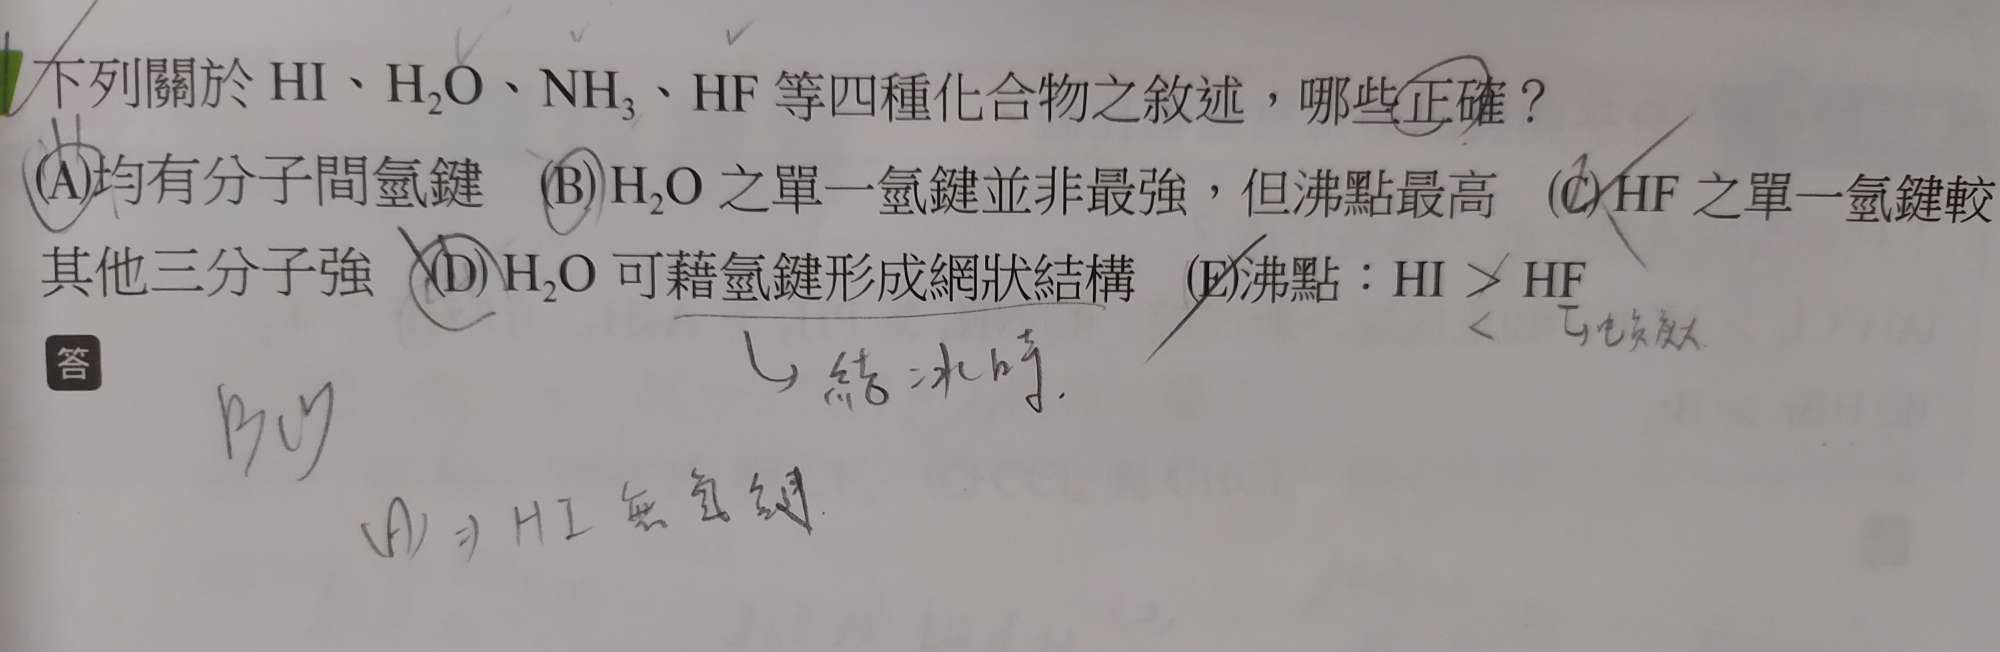 下列關於 HI、H₂O、NH₃、HF 等四種化合物之敘述，哪些正確？
(A)均有分子間氫鍵 (B) H₂O 之單一氫鍵並非最強，但沸點最高 (C) HF 之單一氫鍵較
其他三分子強 (D) H₂O 可藉氫鍵形成網狀結構 (E)沸點：HI > HF
< 電負度大
答
結冰時.
(A) ⇒ HI 無氫鍵.